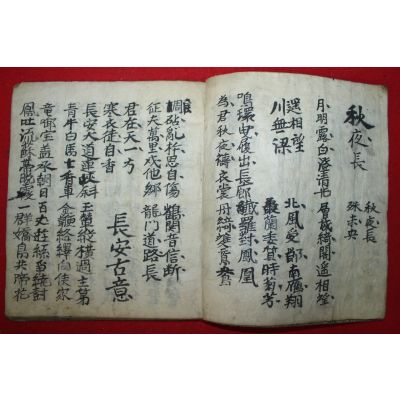 秋夜長
秋夜長
殊未央
月明露白澄清光 層城綺閣遙相望
遙相望 北風受節南鴈翔
川無梁 崇蘭委質時菊芳
鳴環曳履出長廊 纖羅對鳳凰
為君秋夜擣衣裳 丹綺雙鴛鴦
調砧亂杵思自傷 鶴關音信断
征夫萬里戍他鄉 龍門道路長
君在天一方
寒衣徒自香 長安古意
長安大道連狹斜 玉輦縱橫過主第
青牛白馬七香車 金鞭絡繹向侯家
竜啣宝盖承朝日 百丈遊絲争繞樹
鳳吐流蘇帶晚霞 一群嬌鳥共啼花